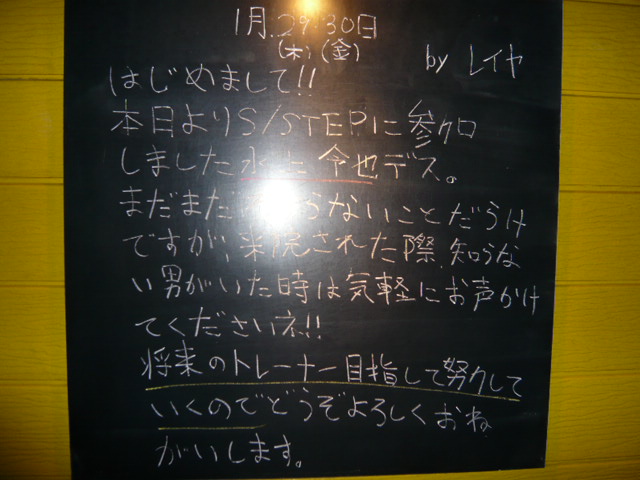 1月.29.30日
(木)(金)
by レイヤ
はじめまして!!
本日よりS/STEPに参加
しました 令也デス。
まだまだ らないことだらけ
ですが、来院された際、知らな
い男がいた時は気軽にお声かけ
てくださいネ!!
将来のトレーナー目指して努力して
いくのでどうぞよろしくおね
がいします。